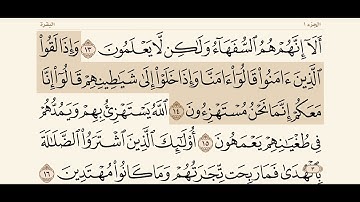 الجزء ١
البقرة
أَلَآ إِنَّهُمْ هُمُ ٱلسُّفَهَآءُ وَلَٰكِن لَّا يَعْلَمُونَ ١٣ وَإِذَا لَقُوا۟
ٱلَّذِينَ ءَامَنُوا۟ قَالُوٓا۟ ءَامَنَّا وَإِذَا خَلَوْا۟ إِلَىٰ شَيَٰطِينِهِمْ قَالُوٓا۟ إِنَّا
مَعَكُمْ إِنَّمَا نَحْنُ مُسْتَهْزِءُونَ ١٤ ٱللَّهُ يَسْتَهْزِئُ بِهِمْ وَيَمُدُّهُمْ
فِى طُغْيَٰنِهِمْ يَعْمَهُونَ ١٥ أُو۟لَٰٓئِكَ ٱلَّذِينَ ٱشْتَرَوُا۟ ٱلضَّلَٰلَةَ
بِٱلْهُدَىٰ فَمَا رَبِحَت تِّجَٰرَتُهُمْ وَمَا كَانُوا۟ مُهْتَدِينَ ١٦